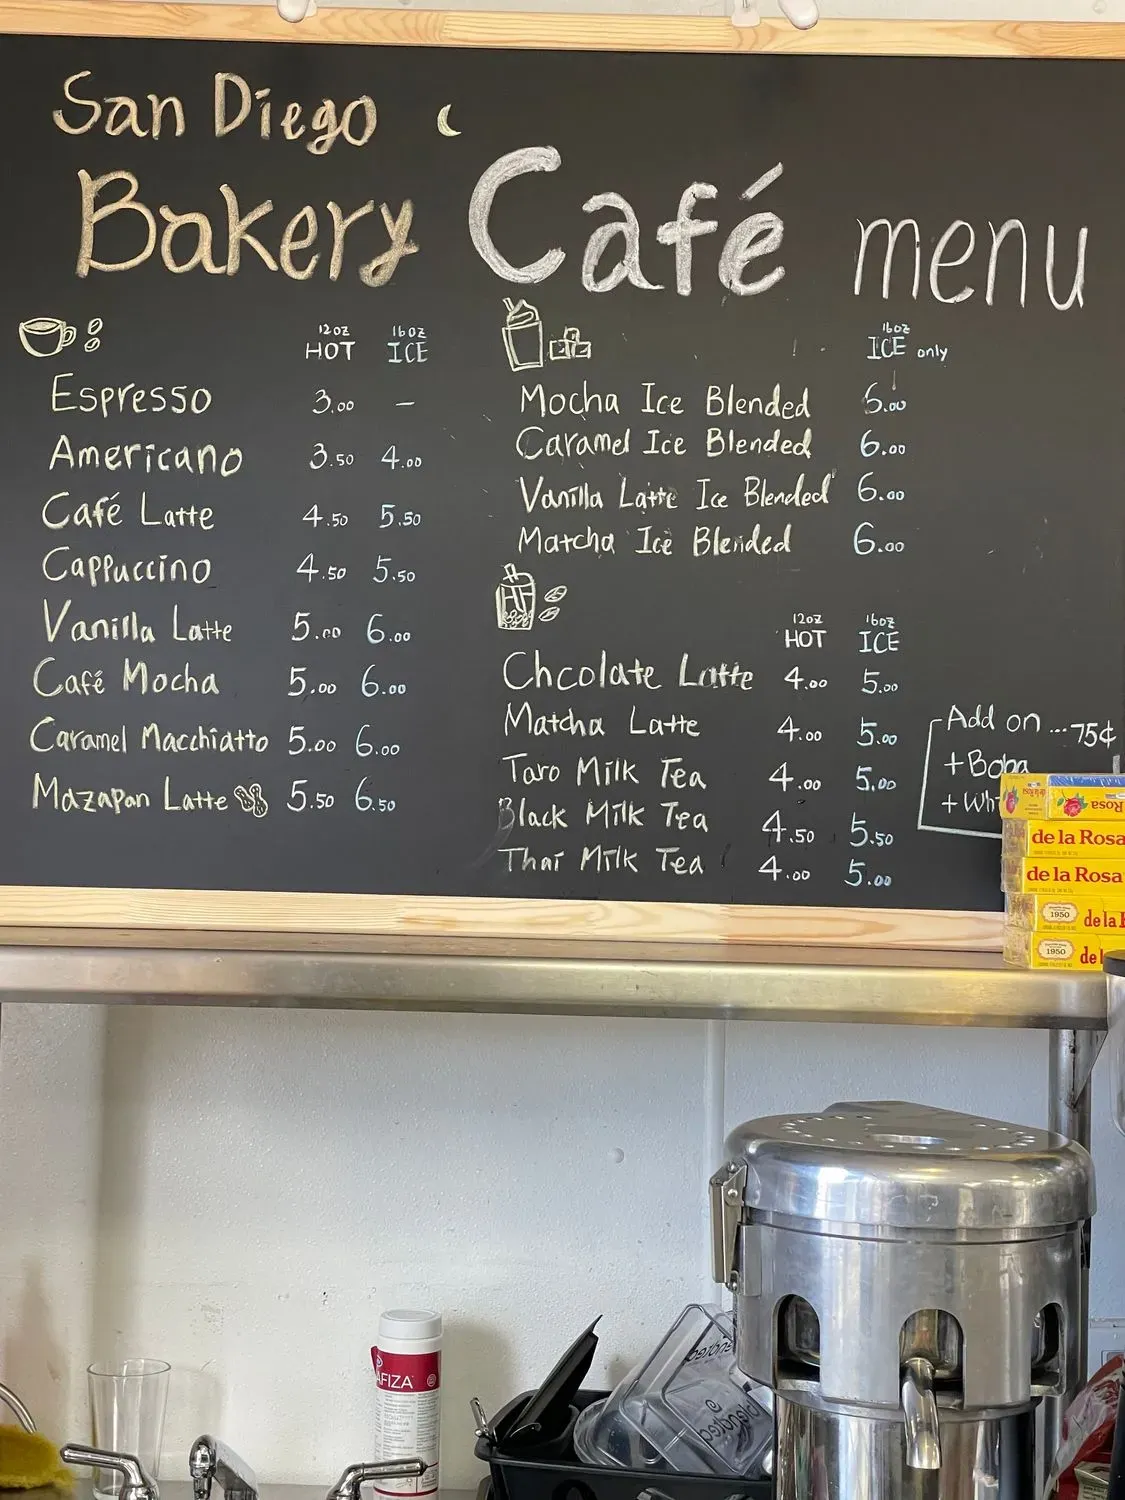 San Diego
Bakery Café menu
12oz 16oz
HOT ICE
Espresso 3.00 —
Americano 3.50 4.00
Café Latte 4.50 5.50
Cappuccino 4.50 5.50
Vanilla Latte 5.00 6.00
Café Mocha 5.00 6.00
Caramel Macchiatto 5.00 6.00
Mazapan Latte 5.50 6.50
16oz
ICE only
Mocha Ice Blended 6.00
Caramel Ice Blended 6.00
Vanilla Latte Ice Blended 6.00
Matcha Ice Blended 6.00
12oz 16oz
HOT ICE
Chcolate Latte 4.00 5.00
Matcha Latte 4.00 5.00
Taro Milk Tea 4.00 5.00
Black Milk Tea 4.50 5.50
Thai Milk Tea 4.00 5.00
Add on ... 75¢
+ Boba
+ Wh
de la Rosa
de la Rosa
de la Rosa
1950 de la
1950 de l
AFIZA